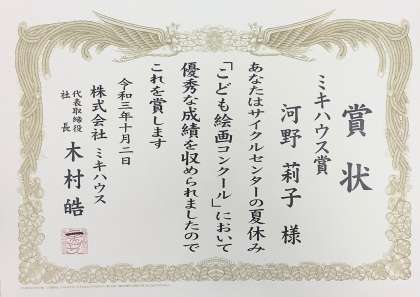 賞状
ミキハウス賞
河野 莉子 様
あなたはサイクルセンターの夏休み
「こども絵画コンクール」において
優秀な成績を収められましたので
これを賞します
令和三年十月二日
株式会社 ミキハウス
代表取締役
社長
木村皓一